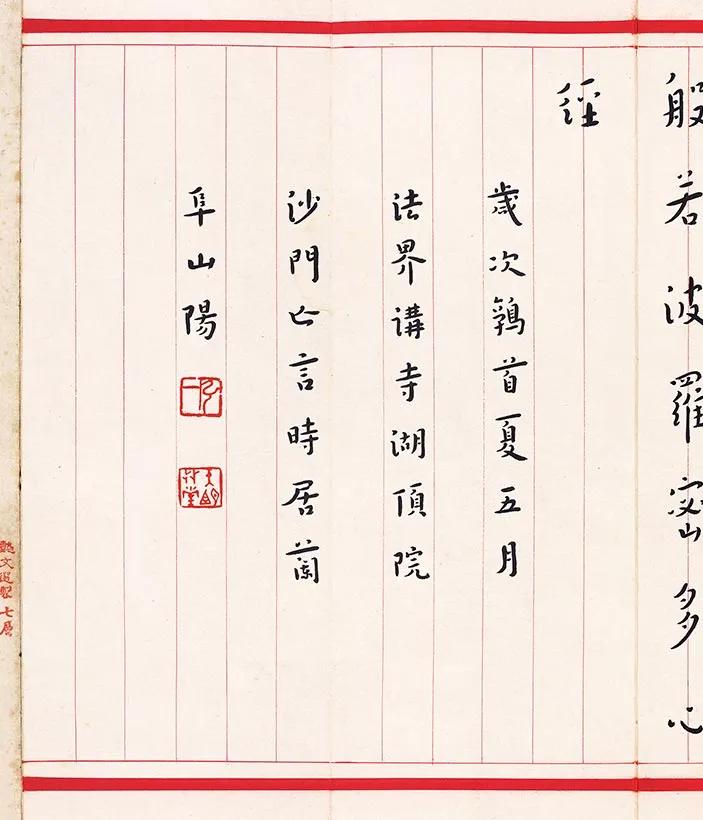 般若波羅密多心
經
歲次鶉首夏五月
法界講寺湖頂院
沙門亡言時居蘭
阜山陽
弘一